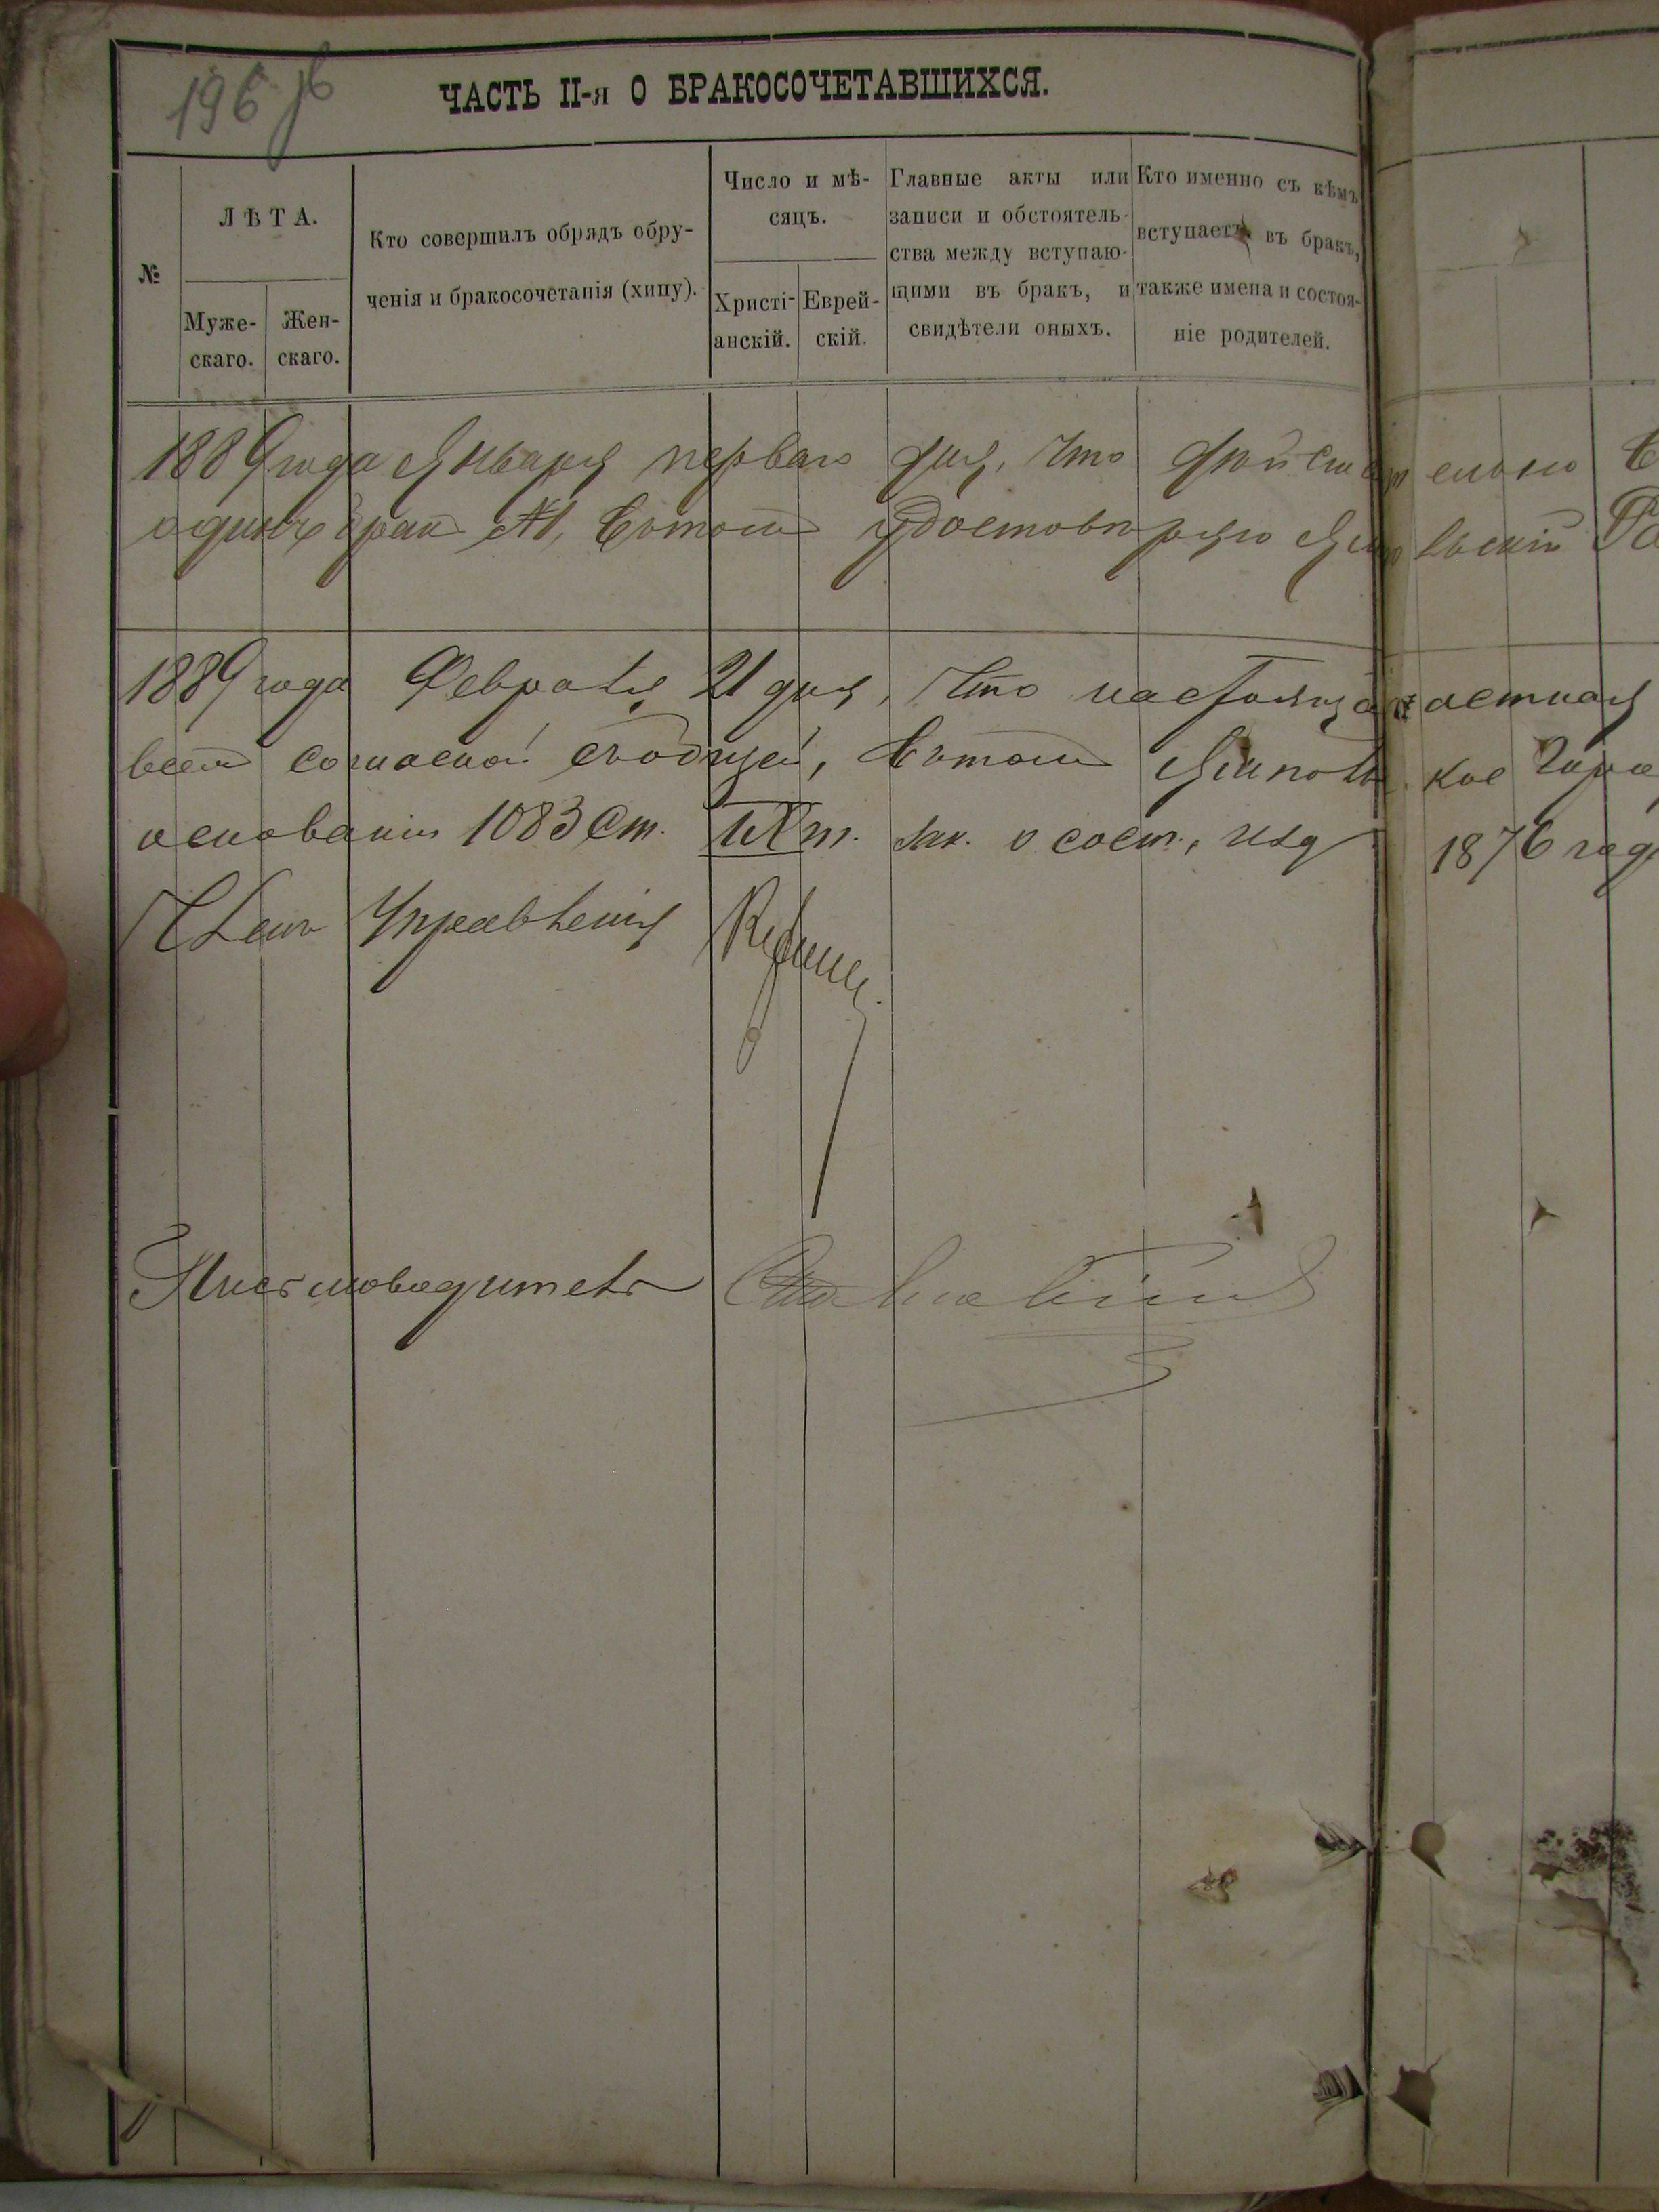 196 об
ЧАСТЬ II-я О БРАКОСОЧЕТАВШИХСЯ.
№
ЛѢТА.
Муже-
скаго.
Жен-
скаго.
Кто совершилъ обрядъ обру-
ченія и бракосочетанія (хипу).
Число и мѣ-
сяцъ.
Христі-
анскій.
Еврей-
скій.
Главные акты или
записи и обстоятель-
ства между вступаю-
щими въ бракъ, и
свидѣтели оныхъ.
Кто именно съ кѣмъ
вступаетъ въ бракъ,
также имена и состоя-
ніе родителей.
1889 года Января перваго дня, что действительно
одинъ брак №1, въ томъ удостовѣряю
1889 года Февраля 21 дня, что настоящая
всей согласно сходной, въ томъ
основаніи 1083 ст. IX т. Зак. о сост., изд 1876 года
Членъ Управленія
Письмоводитель